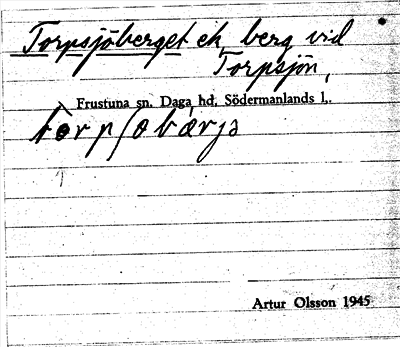 Torpsjöberget ett berg vid
Torpsjön,
Frustuna sn. Daga hd. Södermanlands l.
Artur Olsson 1945